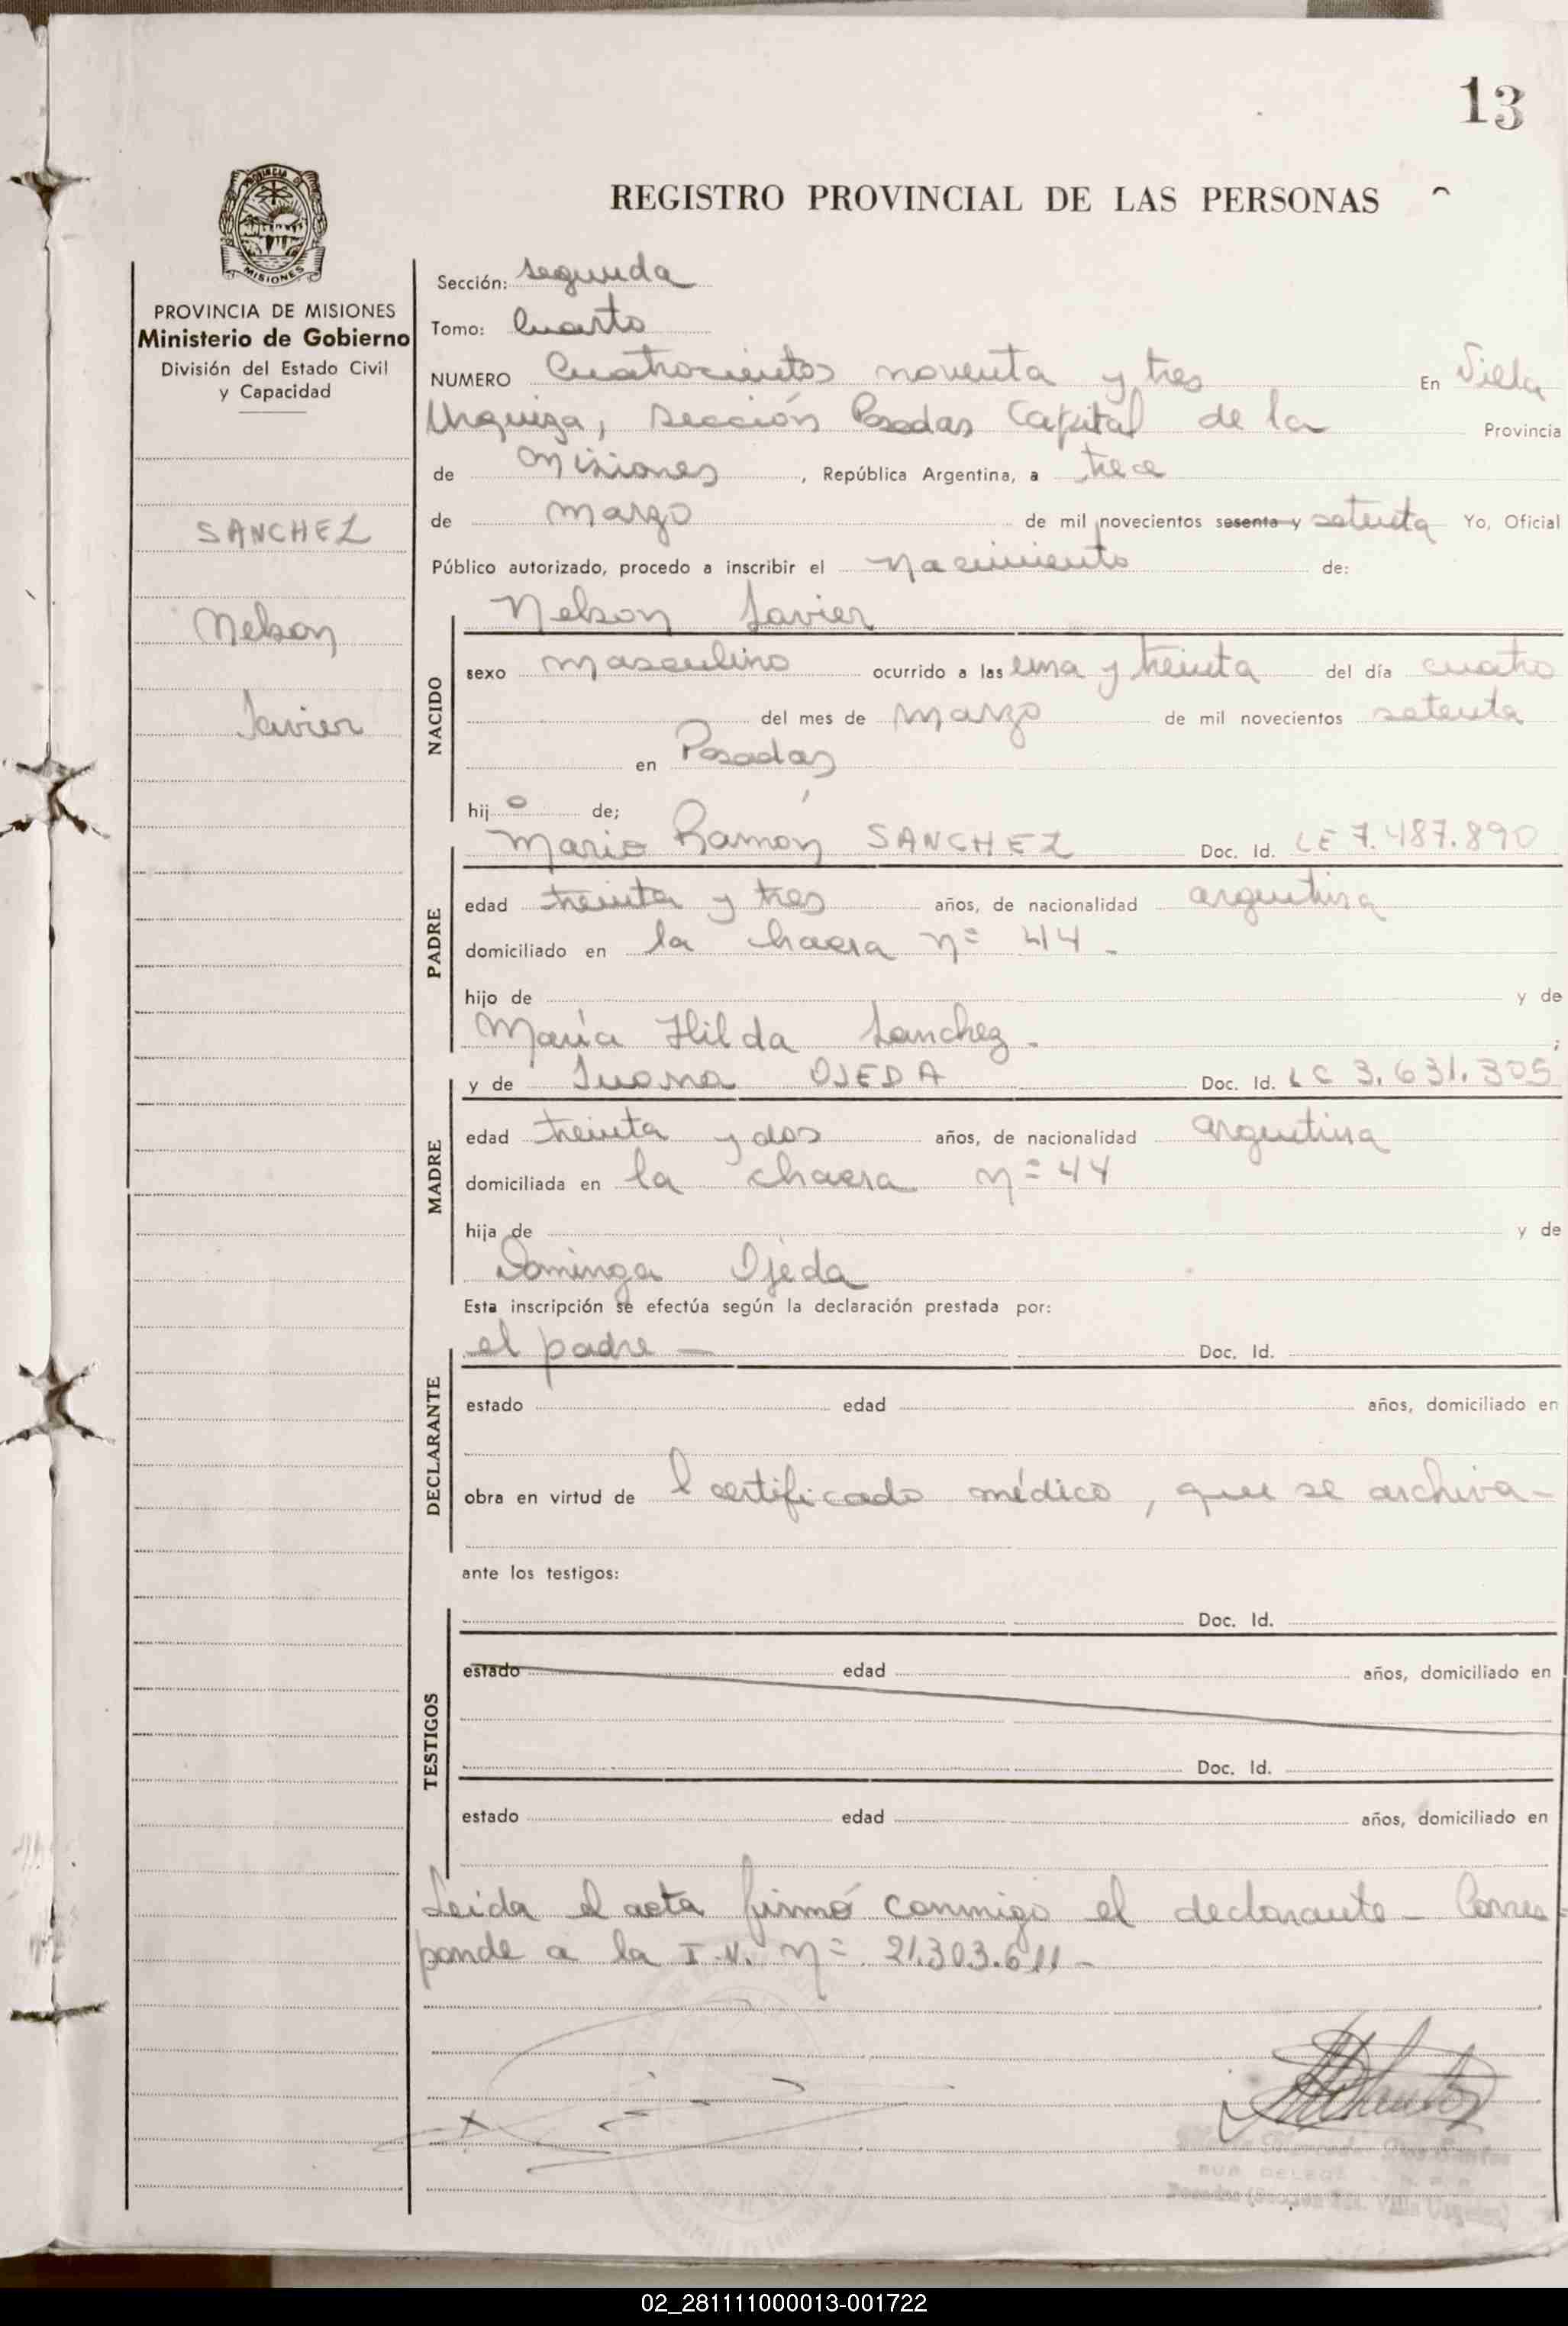 13
REGISTRO PROVINCIAL DE LAS PERSONAS
PROVINCIA DE
MISIONES
PROVINCIA DE MISIONES
Ministerio de Gobierno
División del Estado Civil
y Capacidad
SANCHEZ
Nelson
Javier
Sección: segunda
Tomo: Cuarto
NUMERO Cuatrocientos noventa y tres En Villa
Urquiza, Sección Posadas Capital de la Provincia
de Misiones, República Argentina, a trece
de marzo de mil novecientos sesenta y setenta Yo, Oficial
Público autorizado, procedo a inscribir el Nacimiento de:
Nelson Javier
NACIDO
sexo masculino ocurrido a las una y treinta del día cuatro
del mes de marzo de mil novecientos setenta
en Posadas
hijo de;
Mario Ramón SANCHEZ Doc. Id. LE 7.487.890
PADRE
edad treinta y tres años, de nacionalidad argentina
domiciliado en la chacra nº 44 -
hijo de y de
María Hilda Sanchez - ;
y de Juana OJEDA Doc. Id. LC 3.631.305
MADRE
edad treinta y dos años, de nacionalidad argentina
domiciliada en la chacra nº 44
hija de y de
Dominga Ojeda
Esta inscripción se efectúa según la declaración prestada por:
el padre — Doc. Id.
DECLARANTE
estado edad años, domiciliado en
obra en virtud de l certificado médico, que se archiva-
ante los testigos:
Doc. Id.
TESTIGOS
estado edad años, domiciliado en
Doc. Id.
estado edad años, domiciliado en
Leida el acta firmó conmigo el declarante - Corres=
ponde a la I.N. nº 21.303.611-
02_281111000013-001722